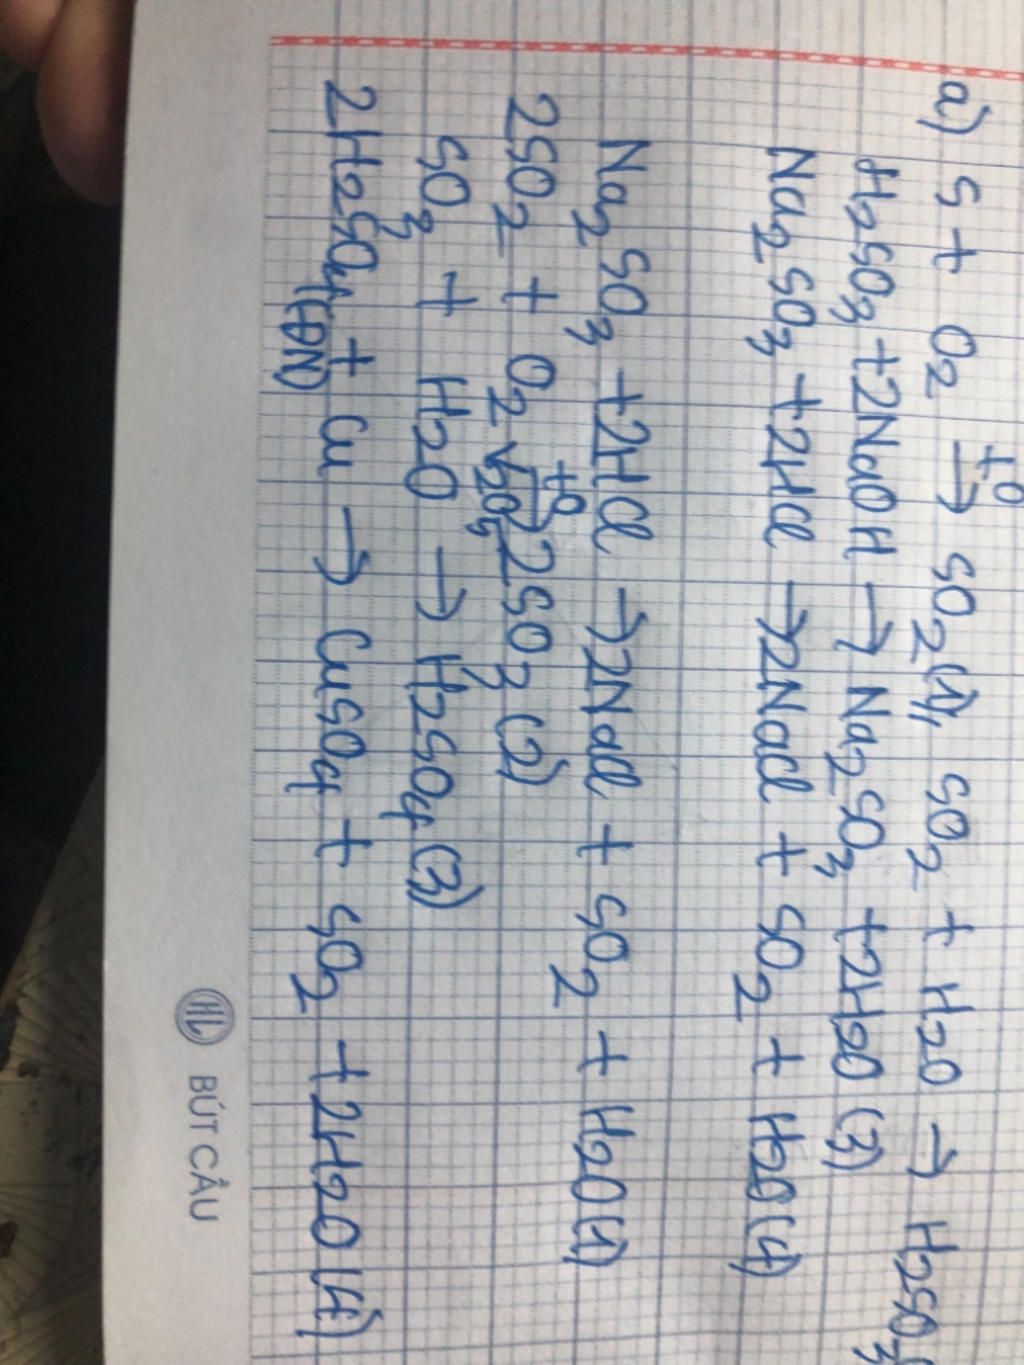 a) S + O2 t0→ SO2 (1), SO2 + H2O → H2SO3
H2SO3 + 2NaOH → Na2SO3 + 2H2O (3)
Na2SO3 + 2HCl → 2NaCl + SO2 + H2O (4)
Na2SO3 + 2HCl → 2NaCl + SO2 + H2O (1)
2SO2 + O2 t0→ V2O5 2SO3 (2)
SO3 + H2O → H2SO4 (3)
2H2SO4 (ĐN) + Cu → CuSO4 + SO2 + 2H2O (4)
HL BÚT CẦU